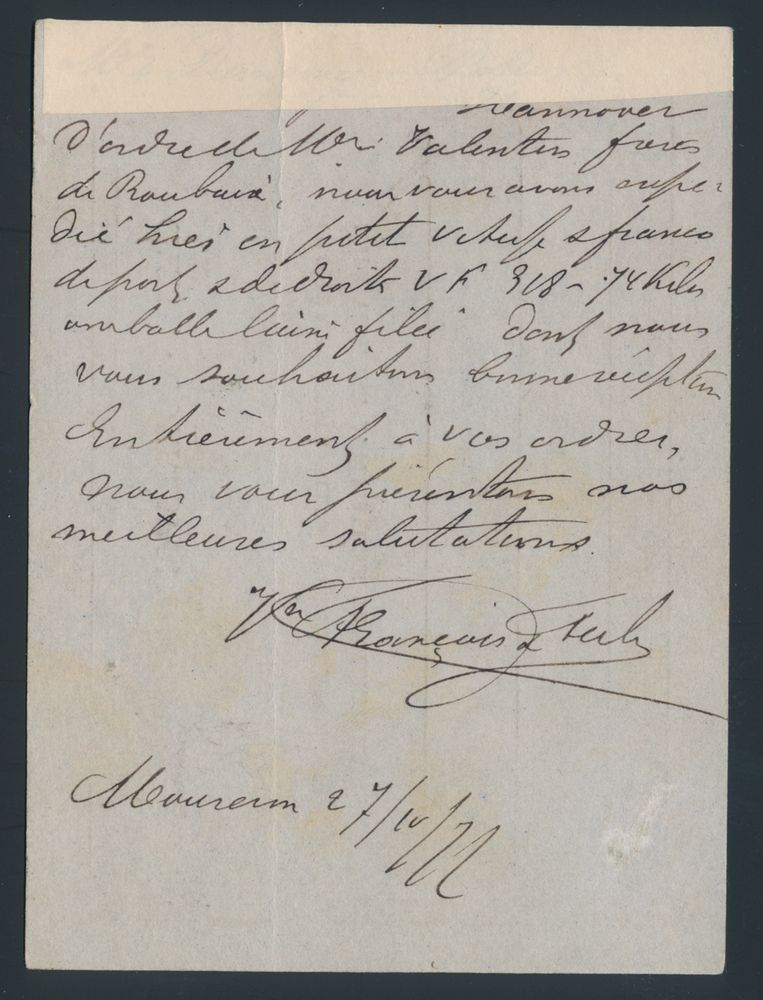 Hannover
D'ordre de Mrs Valentin frères
de Roubaix, nous vous avons expé-
dié hier en petit vitesse franco
de port & de droits VF 318 - 74 Kilos
une balle laine filée dont nous
vous souhaitons bonne réception
Entièrement à vos ordres,
nous vous présentons nos
meilleures salutations.
François &
Mouscron 27/10/71